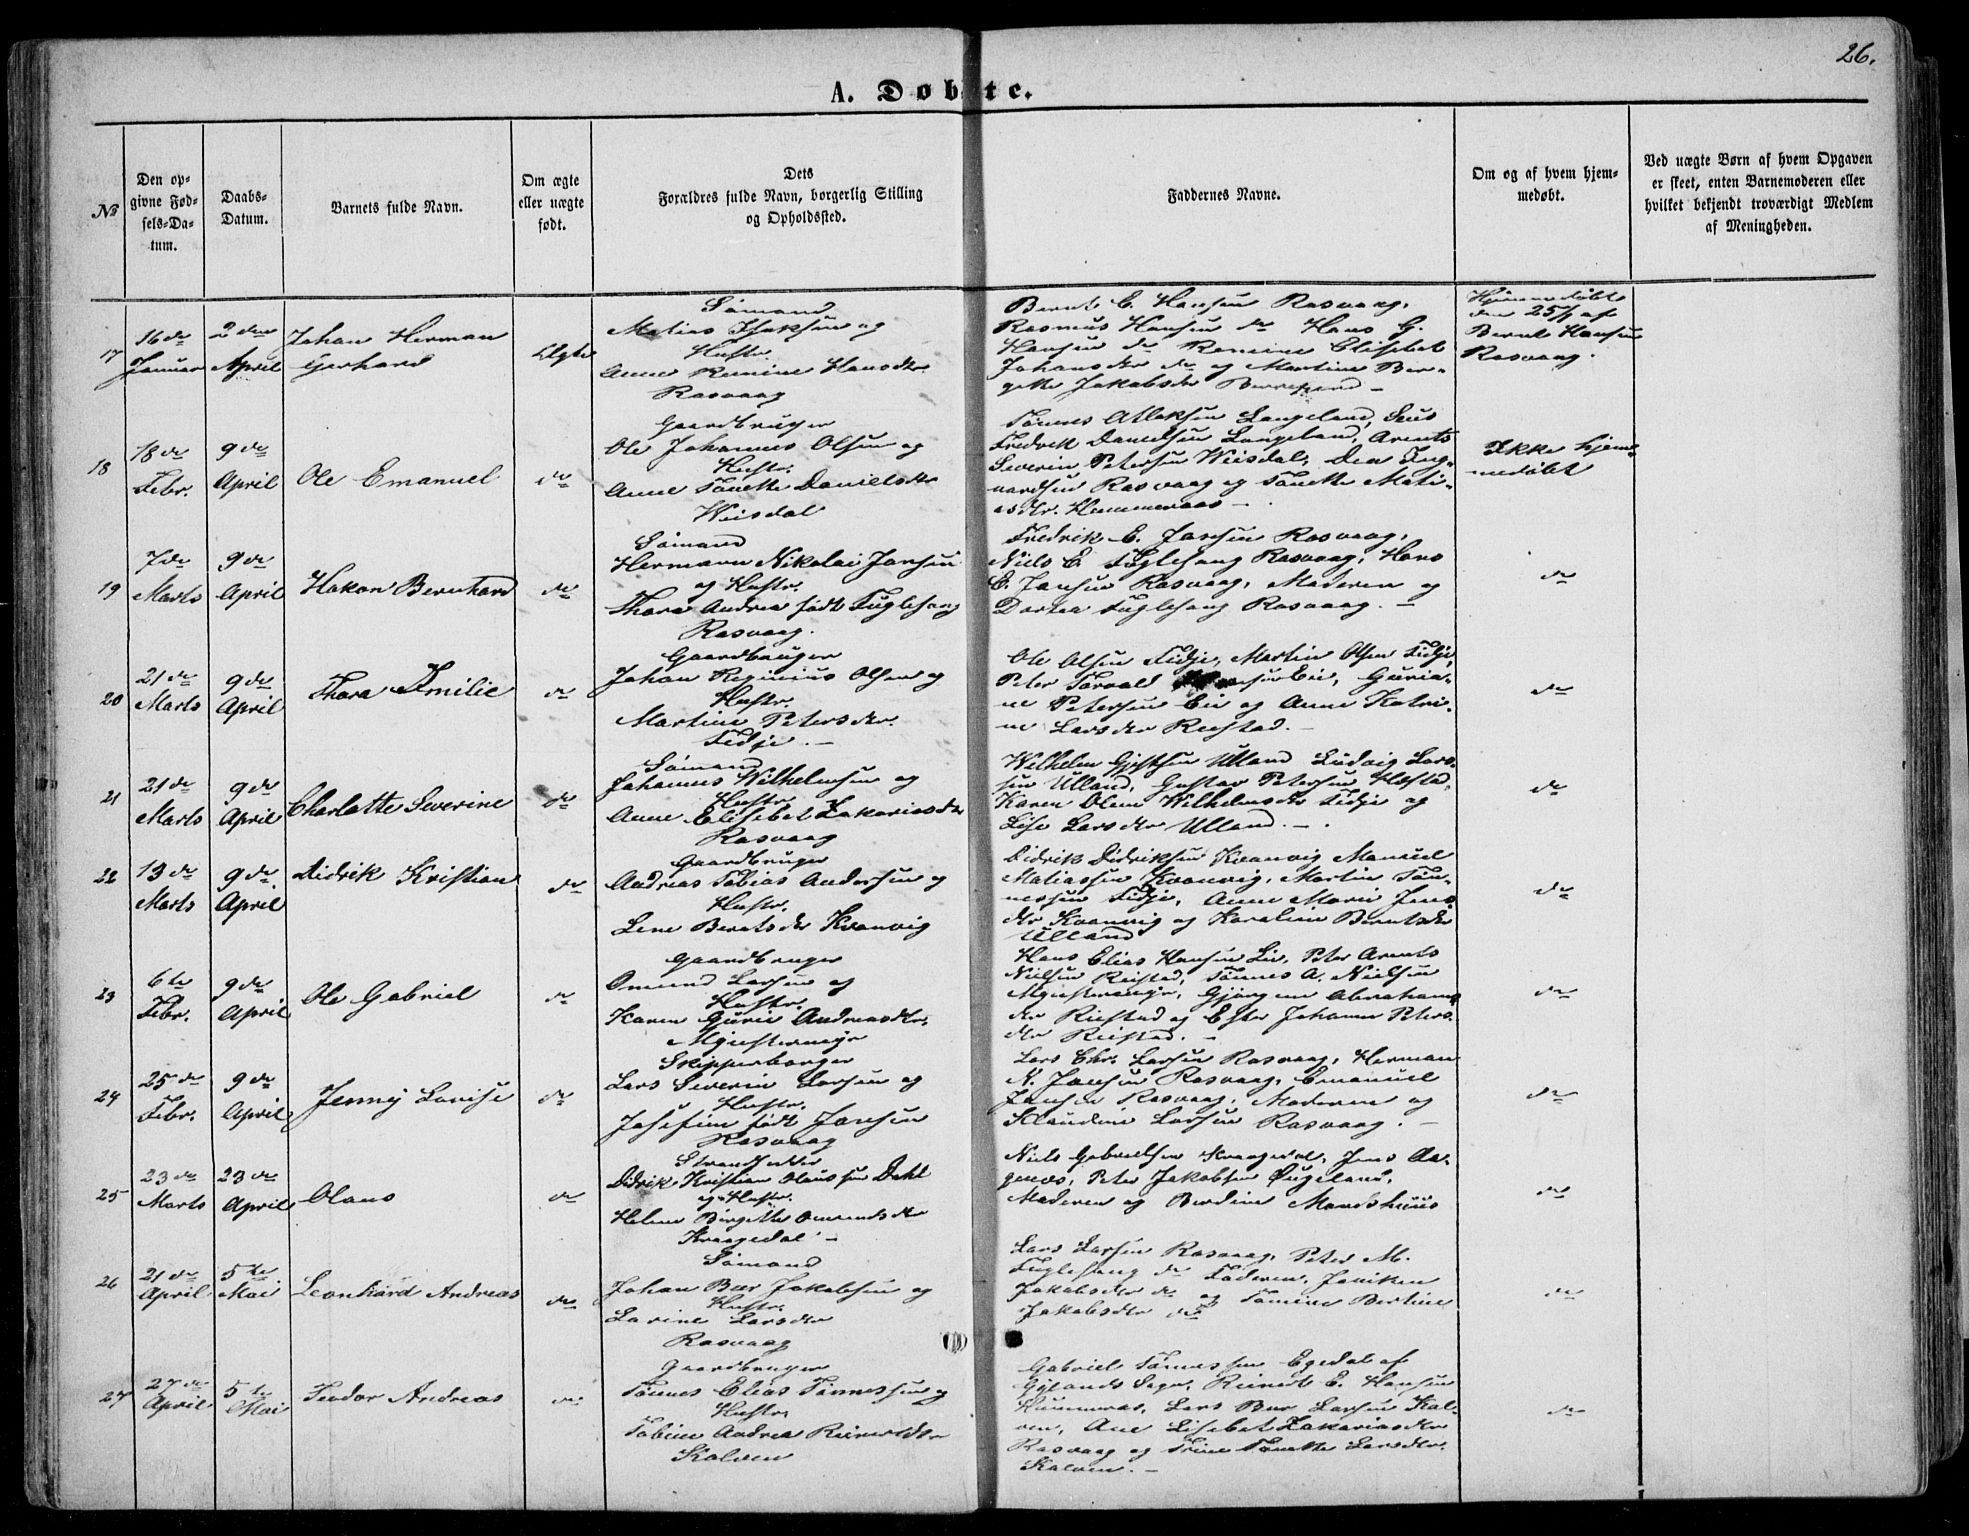 26.
A. Døbte.
№
Den opgivne Fødsels-Datum.
Daabs-Datum.
Barnets fulde Navn.
Om ægte eller uægte født.
Dets Forældres fulde Navn, borgerlig Stilling og Opholdssted.
Faddernes Navne.
Om og af hvem hjemmedøbt.
Ved uægte Børn af hvem Opgaven er skeet, enten Barnemoderen eller hvilket bekjendt troværdigt Medlem af Meningheden.
17
16de Januar
2den April
Johan Herman Gerhard
Ægte
Sømand
Matias Isaksen og
Hustr.
Anne Remine Hansdtr
Rasvaag
Bernt E. Hansen Rasvaag,
Rasmus Hansen do Hans G.
Hansen do Remine Elisebet
Johansdtr do og Martine Ber-
gitte Jakobsdtr
Hjemmedøbt
den 25/1 af
Bernt Hansen
Rasvaag.
18
18de Febr.
9de April
Ole Emanuel
do
Gaardbruger
Ole Johannes Olsen og
Hustr.
Anne Tonette Danielsdtr
Weisdal
Tønnes Atlaksen Langeland,
Fredrik Danielsen Langeland, Arents
Severin Petersen Weisdal,
Rasvaag og Tonette Mati-
asdtr. Hummeraas
Ikke hjem-
medøbt
19
7de Marts
9de April
Hakon Bernhard
do
Sømand
Hermann Nikolai Jansen
og Hustr.
Thora Andrea født Fuglesang
Rasvaag.
Fredrik E. Jansen Rasvaag,
Niels E. Fuglesang Rasvaag, Hans
E. Jansen Rasvaag, Moderen og
Dortea Fuglesang Rasvaag.
do
20
21de Marts
9de April
Thora Emilie
do
Gaardbruger
Johan Reginius Olsen og
Hustr.
Martine Petersdtr.
Fidje.
Ole Olsen Fidje, Martin Olsen Fidje,
Peter Torvald Eie, Guria-
ne Petersen Eie og Anne Katri-
ne Larsdtr Reistad.
do
21
21de Marts
9de April
Charlotte Severine
do
Sømand
Johannes Wilhelmsen og
Hustr.
Anne Elisebet Zakariasdtr
Rasvaag
Wilhelm Ulland Ludvig Lars-
sen Ulland, Gustav Petersen
Karen Olene Wilhelmsdtr Fidje og
Lise Larsdtr Ulland.
do
22
13de Marts
9de April
Didrik Kristian
do
Gaardbruger
Andreas Tobias Andersen og
Hustr.
Lene Berntsdtr Kvanvig
Didrik Didriksen Kvanvig Manuel
Matiassen Kvanvig, Martin Tøn-
nessen Fidje, Anne Marie Jens
dtr Kvanvig og Karoline Berntsdtr
Ulland
do
23
6te Febr.
9de April
Ole Gabriel
do
Gaardbruger
Omund Larsen og
Hustr.
Karen Gurie Andreasdtr.
Hans Elias Hansen Eie, Peter Arents
Nielsen Reistad, Tønnes A. Nielsen
Abrahams
dtr Reistad og Ester Johanne Peters-
dtr Reistad.
do
24
25de Febr.
9de April
Jenny Lovise
do
Skipperborger
Lars Severin Larsen og
Hustr.
Josefine født Jansen
Rasvaag
Lars Chr. Larsen Rasvaag, Herman
N. Jansen Rasvaag, Emanuel
Jansen Rasvaag, Moderen og
Klaudine Larsen Rasvaag.
do
25
23de Marts
23de April
Olaus
do
Strandsidder
Didrik Kristian Olaussen Dahl
og Hustr.
Helene Birgitte Omundsdtr
Kraagedal
Niels Gabrielsen Kraagedal, Jens Aa-
genæs, Peter Jakobsen Øugeland,
Moderen og Berdine
do
26
21de April
5te Mai
Leonhard Andreas
do
Sømand
Johan Jakobsen og
Hustr.
Larine Larsdtr
Rasvaag
Lars Larsen Rasvaag, Peter M.
Fuglesang do Faderen, Janiken
Jakobsdtr do og Tomine Bertine
Jakobsdtr do
do
27
27de April
5te Mai
Teodor Andreas
do
Gaardbruger
Tønnes Elias Tønnessen og
Hustr.
Tobine Andrea Reinertsdtr
Kalven
Gabriel Tønnessen Egedal af
Gylands Sogn, Reinert E. Hansen
Hummeras, Lars Larsen Kal-
ven, Ane Lisebet Zakariasdtr
Rasvaag og Trine Tonette Larsdtr.
Kalven.
do